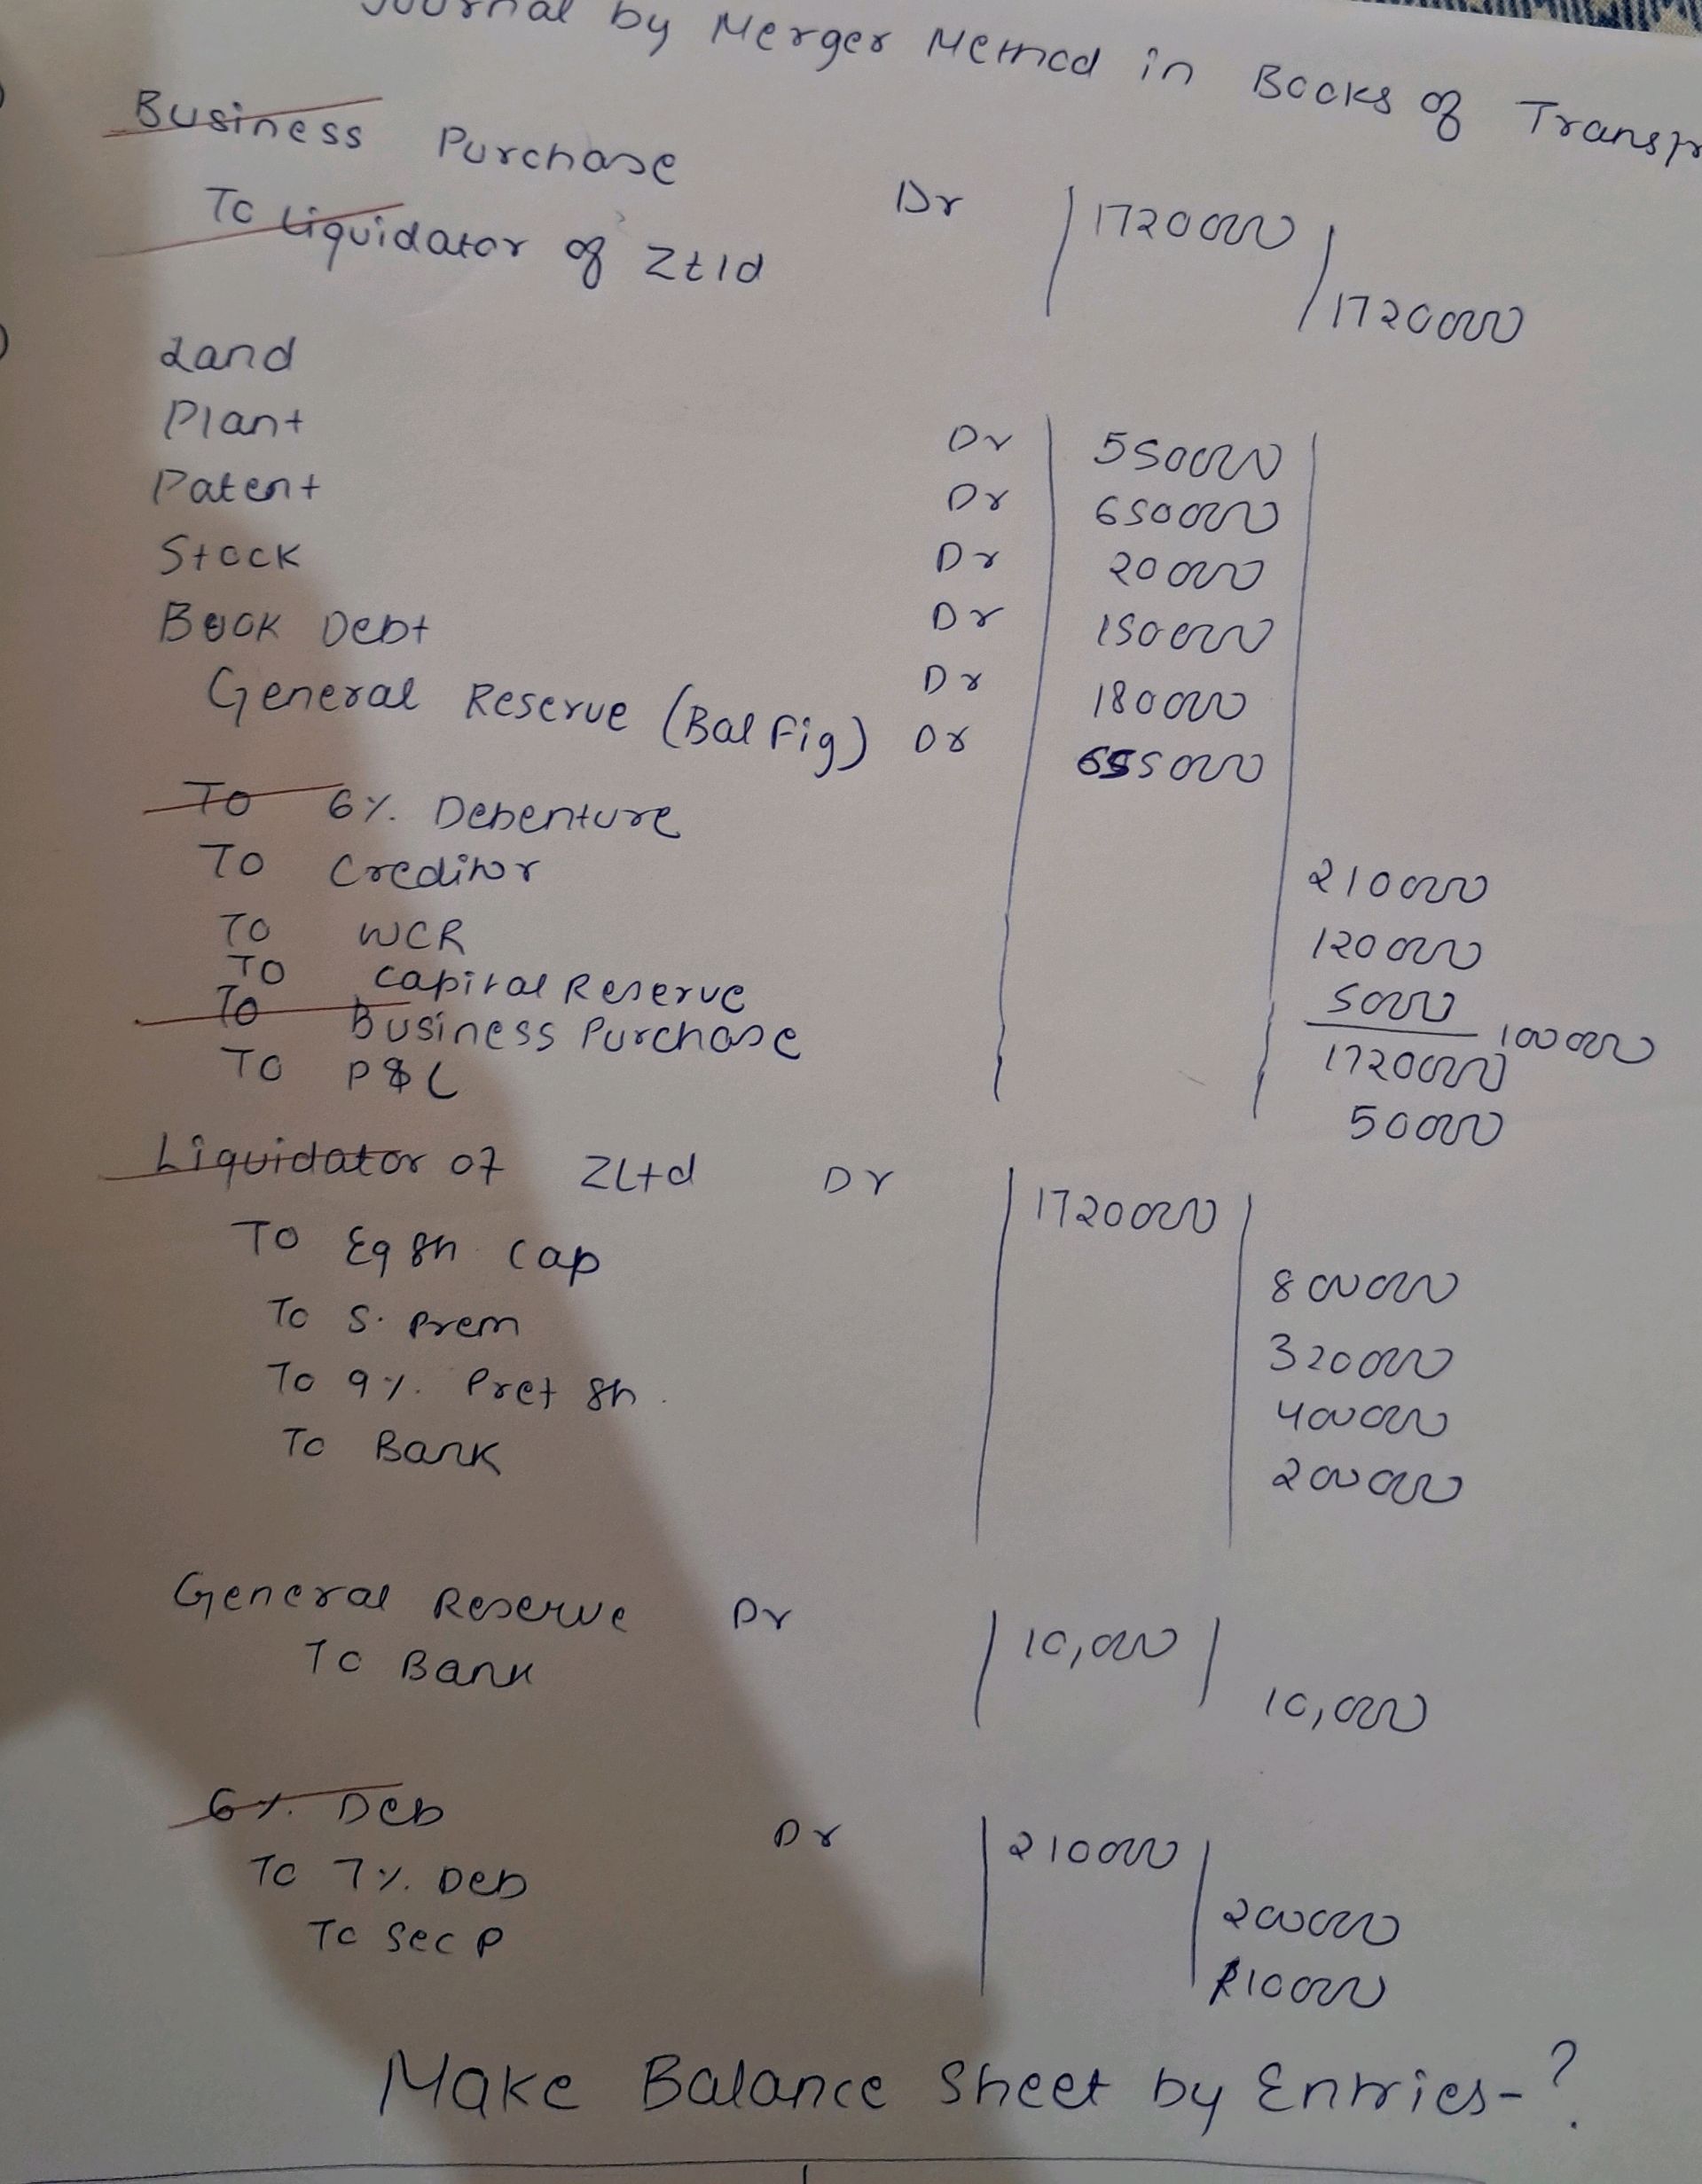 Journal by Merger Method in Books of Transfr
Business Purchase Dr 1720000
To Liquidator of Ztld 1720000
Land Dr 550000
Plant Dr 650000
Patent Dr 20000
Stock Dr 150000
Book Debt Dr 180000
General Reserve (Bal fig) Dr 655000
To 6%. Debenture 210000
To Creditor 120000
To WCR 5000
To Capital Reserve 100000
To Business Purchase 1720000
To P&L 50000
Liquidator of ZLtd Dr 1720000
To Eq sh Cap 800000
To S. Prem 320000
To 9%. Pref sh. 400000
To Bank 200000
General Reserve Dr 10,000
To Bank 10,000
6%. Deb Dr 210000
To 7%. Deb 200000
To Sec P 10000
Make Balance Sheet by Entries-?